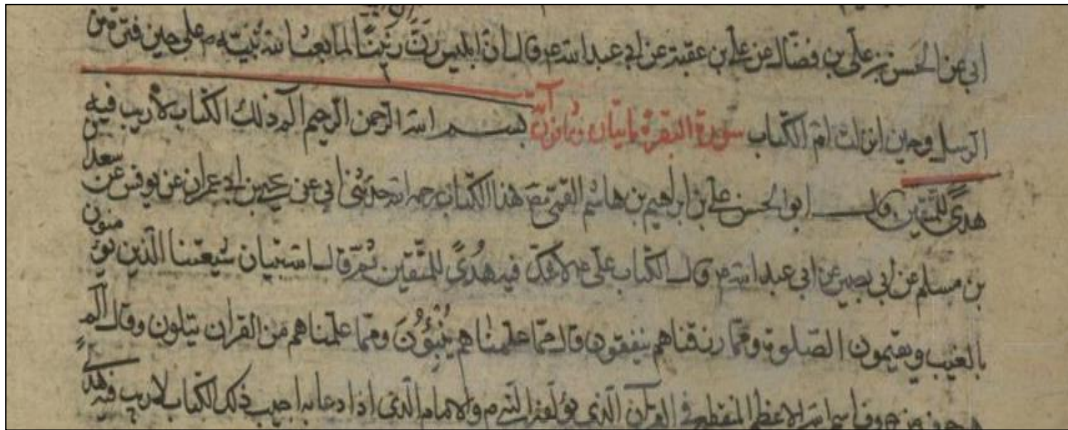 ابى عن الحسن بن على بن فضال عن على بن عقبة عن ابى عبد الله ع قال ان ابليس رنّ رنينا لما بعث الله نبيه ص على حين فترة من
الرسل وحين انزلت ام الكتاب سورة البقرة مايتان آية بسم الله الرحمن الرحيم الم ذلك الكتاب لا ريب فيه
هدى للمتقين قال ابو الحسن على بن ابراهيم بن هاشم القمى هذا الكتاب رحمه الله حدثنى ابى عن يحيى بن ابى عمران عن يونس عن سعدان
بن مسلم عن ابى بصير عن ابى عبد الله ع قال الكتاب على ع لا شك فيه هدى للمتقين قال تبيان لشيعتنا الذين يؤمنون
بالغيب ويقيمون الصلوة ومما رزقناهم ينفقون قال مما علمناهم ينبؤن ومما علمناهم من القران يتلون وقال الم
هو حرف من حروف اسم الله الاعظم المقطع فى القرآن الذى والامام الذى اذا دعا به اجيب ذلك الكتاب لا ريب فيه هدى